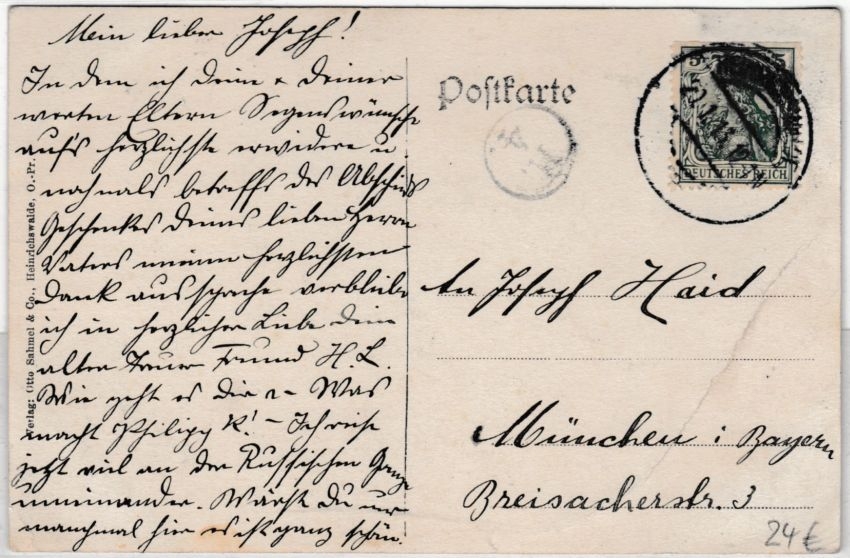 Mein lieber Joseph!
In dem ich deine & deiner
werten Eltern Segenswünsche
aufs herzlichste erwidere u
nochmals betreffs des Abschieds
Geschenkes deines lieben Herrn
Vaters meinen herzlichsten
Dank ausspreche verbleibe
ich in herzlicher Liebe dein
alter treuer Freund H. L.
Wie geht es dir Was
macht Philipp K! – Ich reise
jetzt viel an der Russischen Grenze
umeinander. Wärst Du nur
manchmal hier es ist ganz schön.
Verlag: Otto Sahmel & Co., Heinrichswalde, O.-Pr.
Postkarte
5 5
DEUTSCHES REICH
An Joseph Haid
München i Bayern
Breisacherstr. 3
24 €